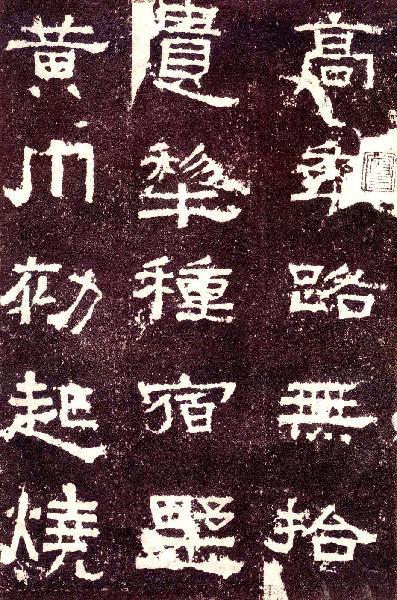 高年路無拾
遺犂種宿墅
黃巾初起燒